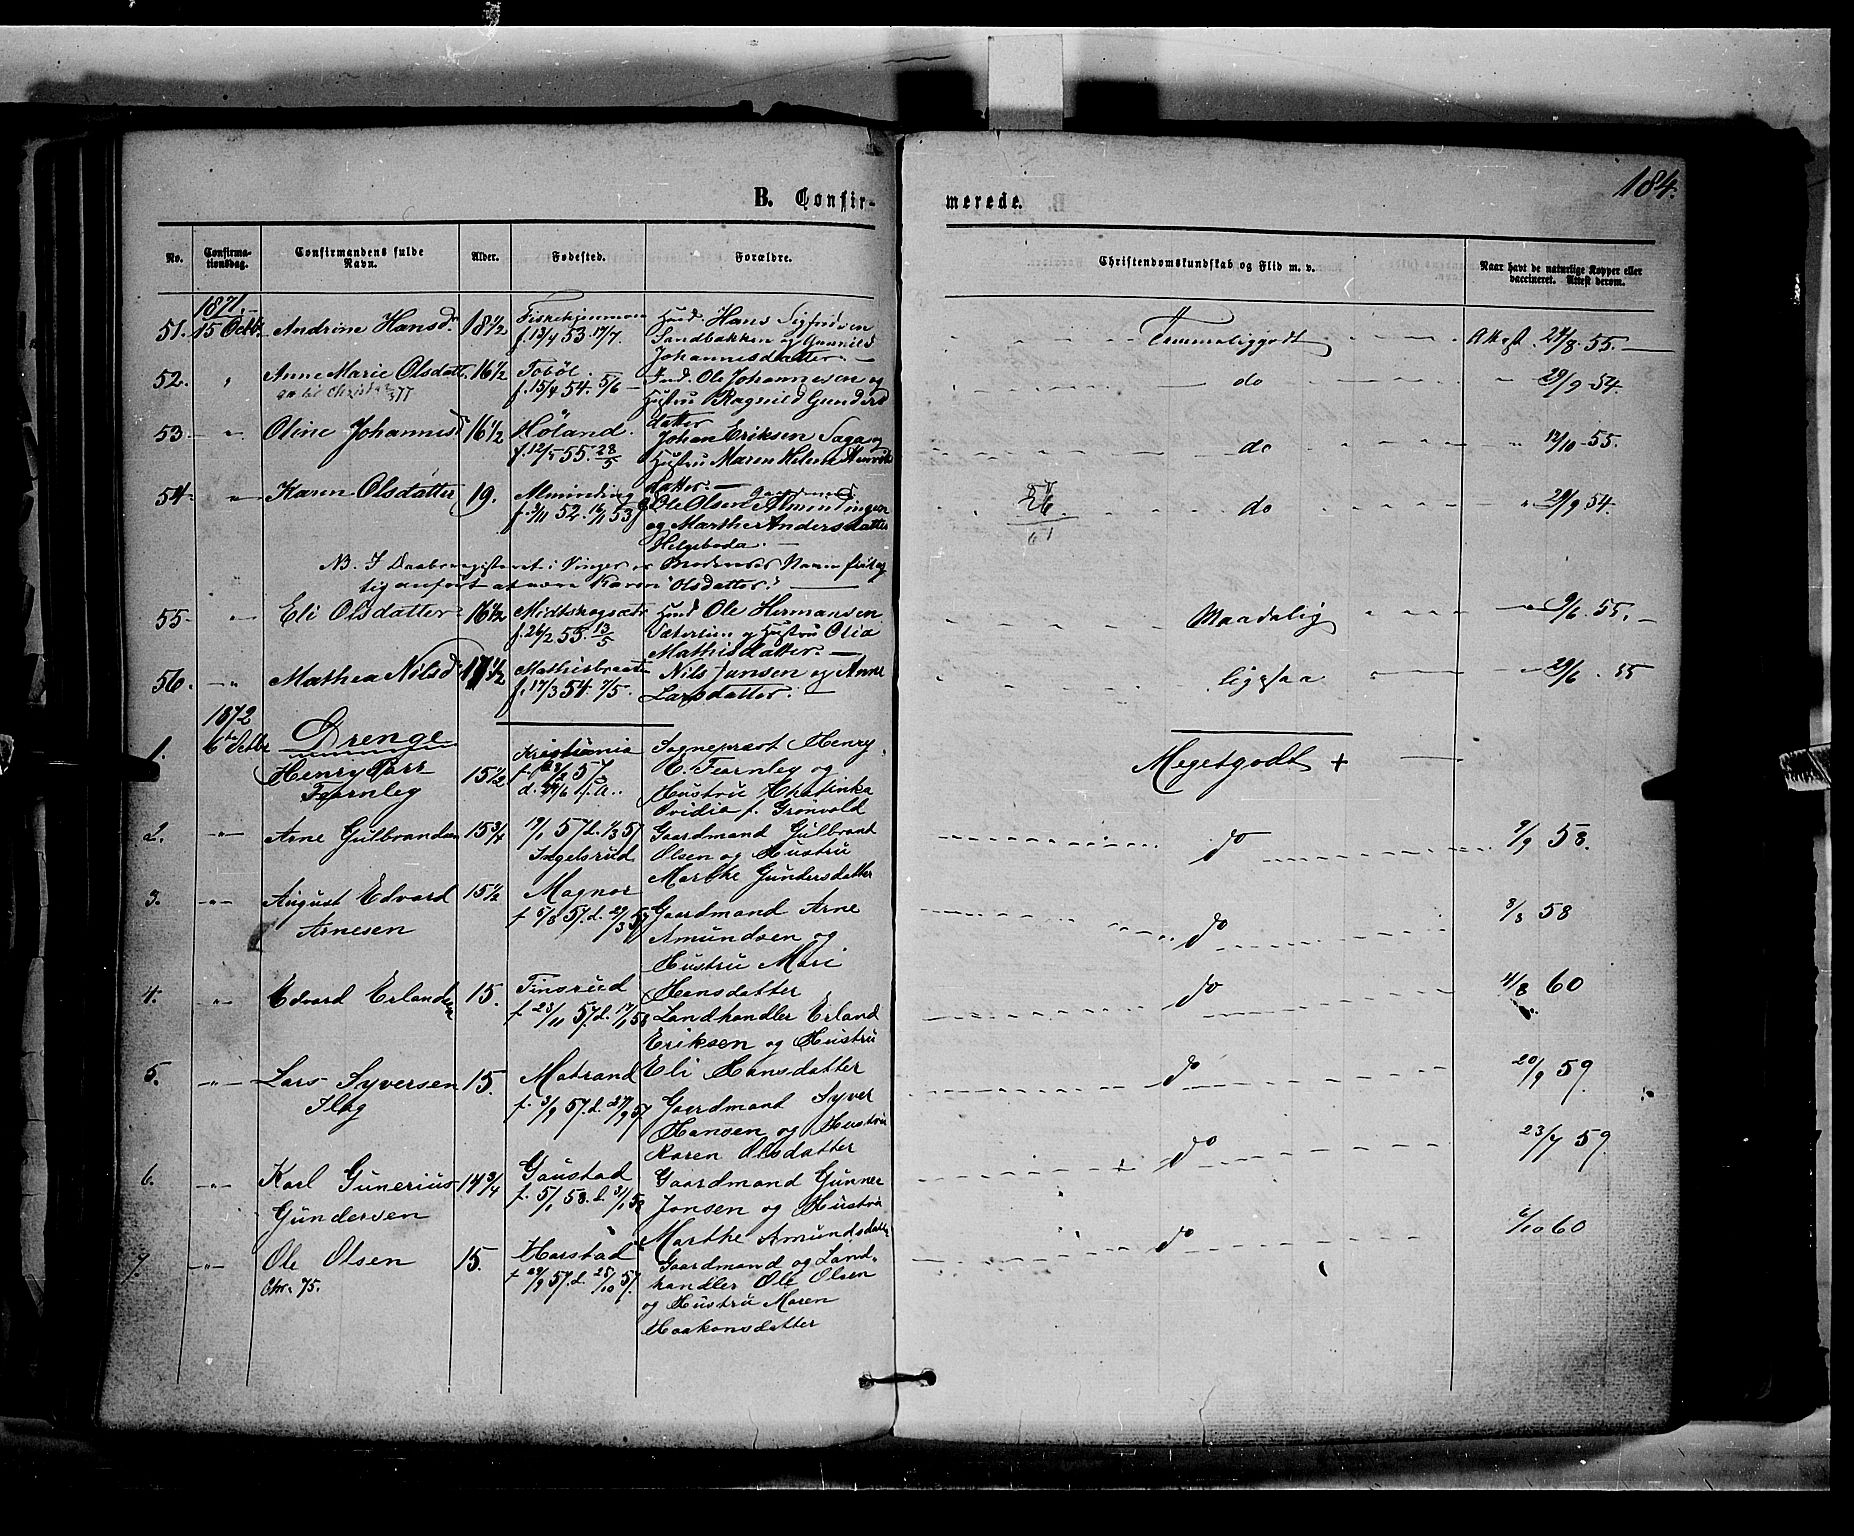 184.
B. Confir-
merede.
No.
Confirma-
tionsdag.
Confirmandens fulde
Navn.
Alder.
Fødested.
Forældre.
Christendomskundskab og Flid m. v.
Naar havt de naturlige Kopper eller
vaccineret. Attest derom.
1871.
51. 15 Octb. Andrine Hansd. 18 1/2 f. 13/4 53. 17/7. Hans Sigfridsen
Sandbakken og Gunnild
Johannisdatter. Temmeliggodt Attest 24/8 55.
52. " Anne Marie Olsdatt. 16 1/2 Tobøl.
f. 15/4 54. 5/6 Ind. Ole Johannesen og
Hustru Ragnild Gunders
datter do 29/9 54.
53 " Oline Johannisd 16 1/2 Høland.
f. 12/5 55. 28/5 Johan Eriksen Saga og
Hustru Maren Helene Henrik
datter. do 12/10 55.
54. " Karen Olsdatter 19. Alminding
f. 3/11 52. 16/1 53 Ole Olsen Almindingen
og Marthe Andersdatter
Helgeboda. do 29/9 54.
NB. I Daabsregisteret i Vinger er Moderens Navn feilag
tig anført at være Karen Olsdatter.
55. " Eli Olsdatter 16 1/2 Midtskogsæter
f. 26/2 55. 13/5 Hmd Ole Hermansen
Sætersien og Hustru Olia
Mathisdatter. Maadelig 9/6. 55.
56. " Mathea Nilsd 17 1/2 Mathisbraate
f. 17/3 54 7/5 Nils Jansen og Anne
Larsdatter. ligesaa 29/6. 55
1872
6te Octbr Drenge
1. Henry Parr
Fearnley 15 1/2 Kristiania
f. 23/2 57
d. 24/6 s. a. Sogneprest Henry
E. Fearnley og
Hustru Hpatinka
Ovidia f. Grønvold Megetgodt +
2. " Arne Gulbrandsen 15 3/4 19/1 57 d. 1/3 57
Ingelsrud Gaardmand Gulbrant
Olsen og Hustru
Marthe Gundersdatter do 9/9 58.
3. " August Edvard
Arnesen 15 1/2 Magnor
f. 5/8 57. d. 29/3 58 Gaardmand Arne
Amundsen og
Hustru Mari
Hansdatter do 3/8 58
4. " Edvard Erlandsen 15. Finsrud
f. 23/11 57. d. 17/1 58 Landhandler Erland
Eriksen og Hustru
Eli Hansdatter do 11/8 60
5. " Lars Syversen
Flog 15. Matrand
f. 3/9 57. d. 27/9 57 Gaardmant Syver
Hansen og Hustru
Karen Olsdatter do 20/9 59
6. " Karl Gunerius
Gundersen 14 3/4 Gaustad
f. 5/1 58. d. 31/1 58 Gaardmand Gunner
Jonsen og Hustru
Marthe Amundsdatter do 23/7 59
7. " Ole Olsen 15. Harstad
f. 29/9 57. d. 25/10 57. Gaardmand og Land-
handler Ole Olsen
og Hustru Maren
Haakonsdatter do 6/10 60